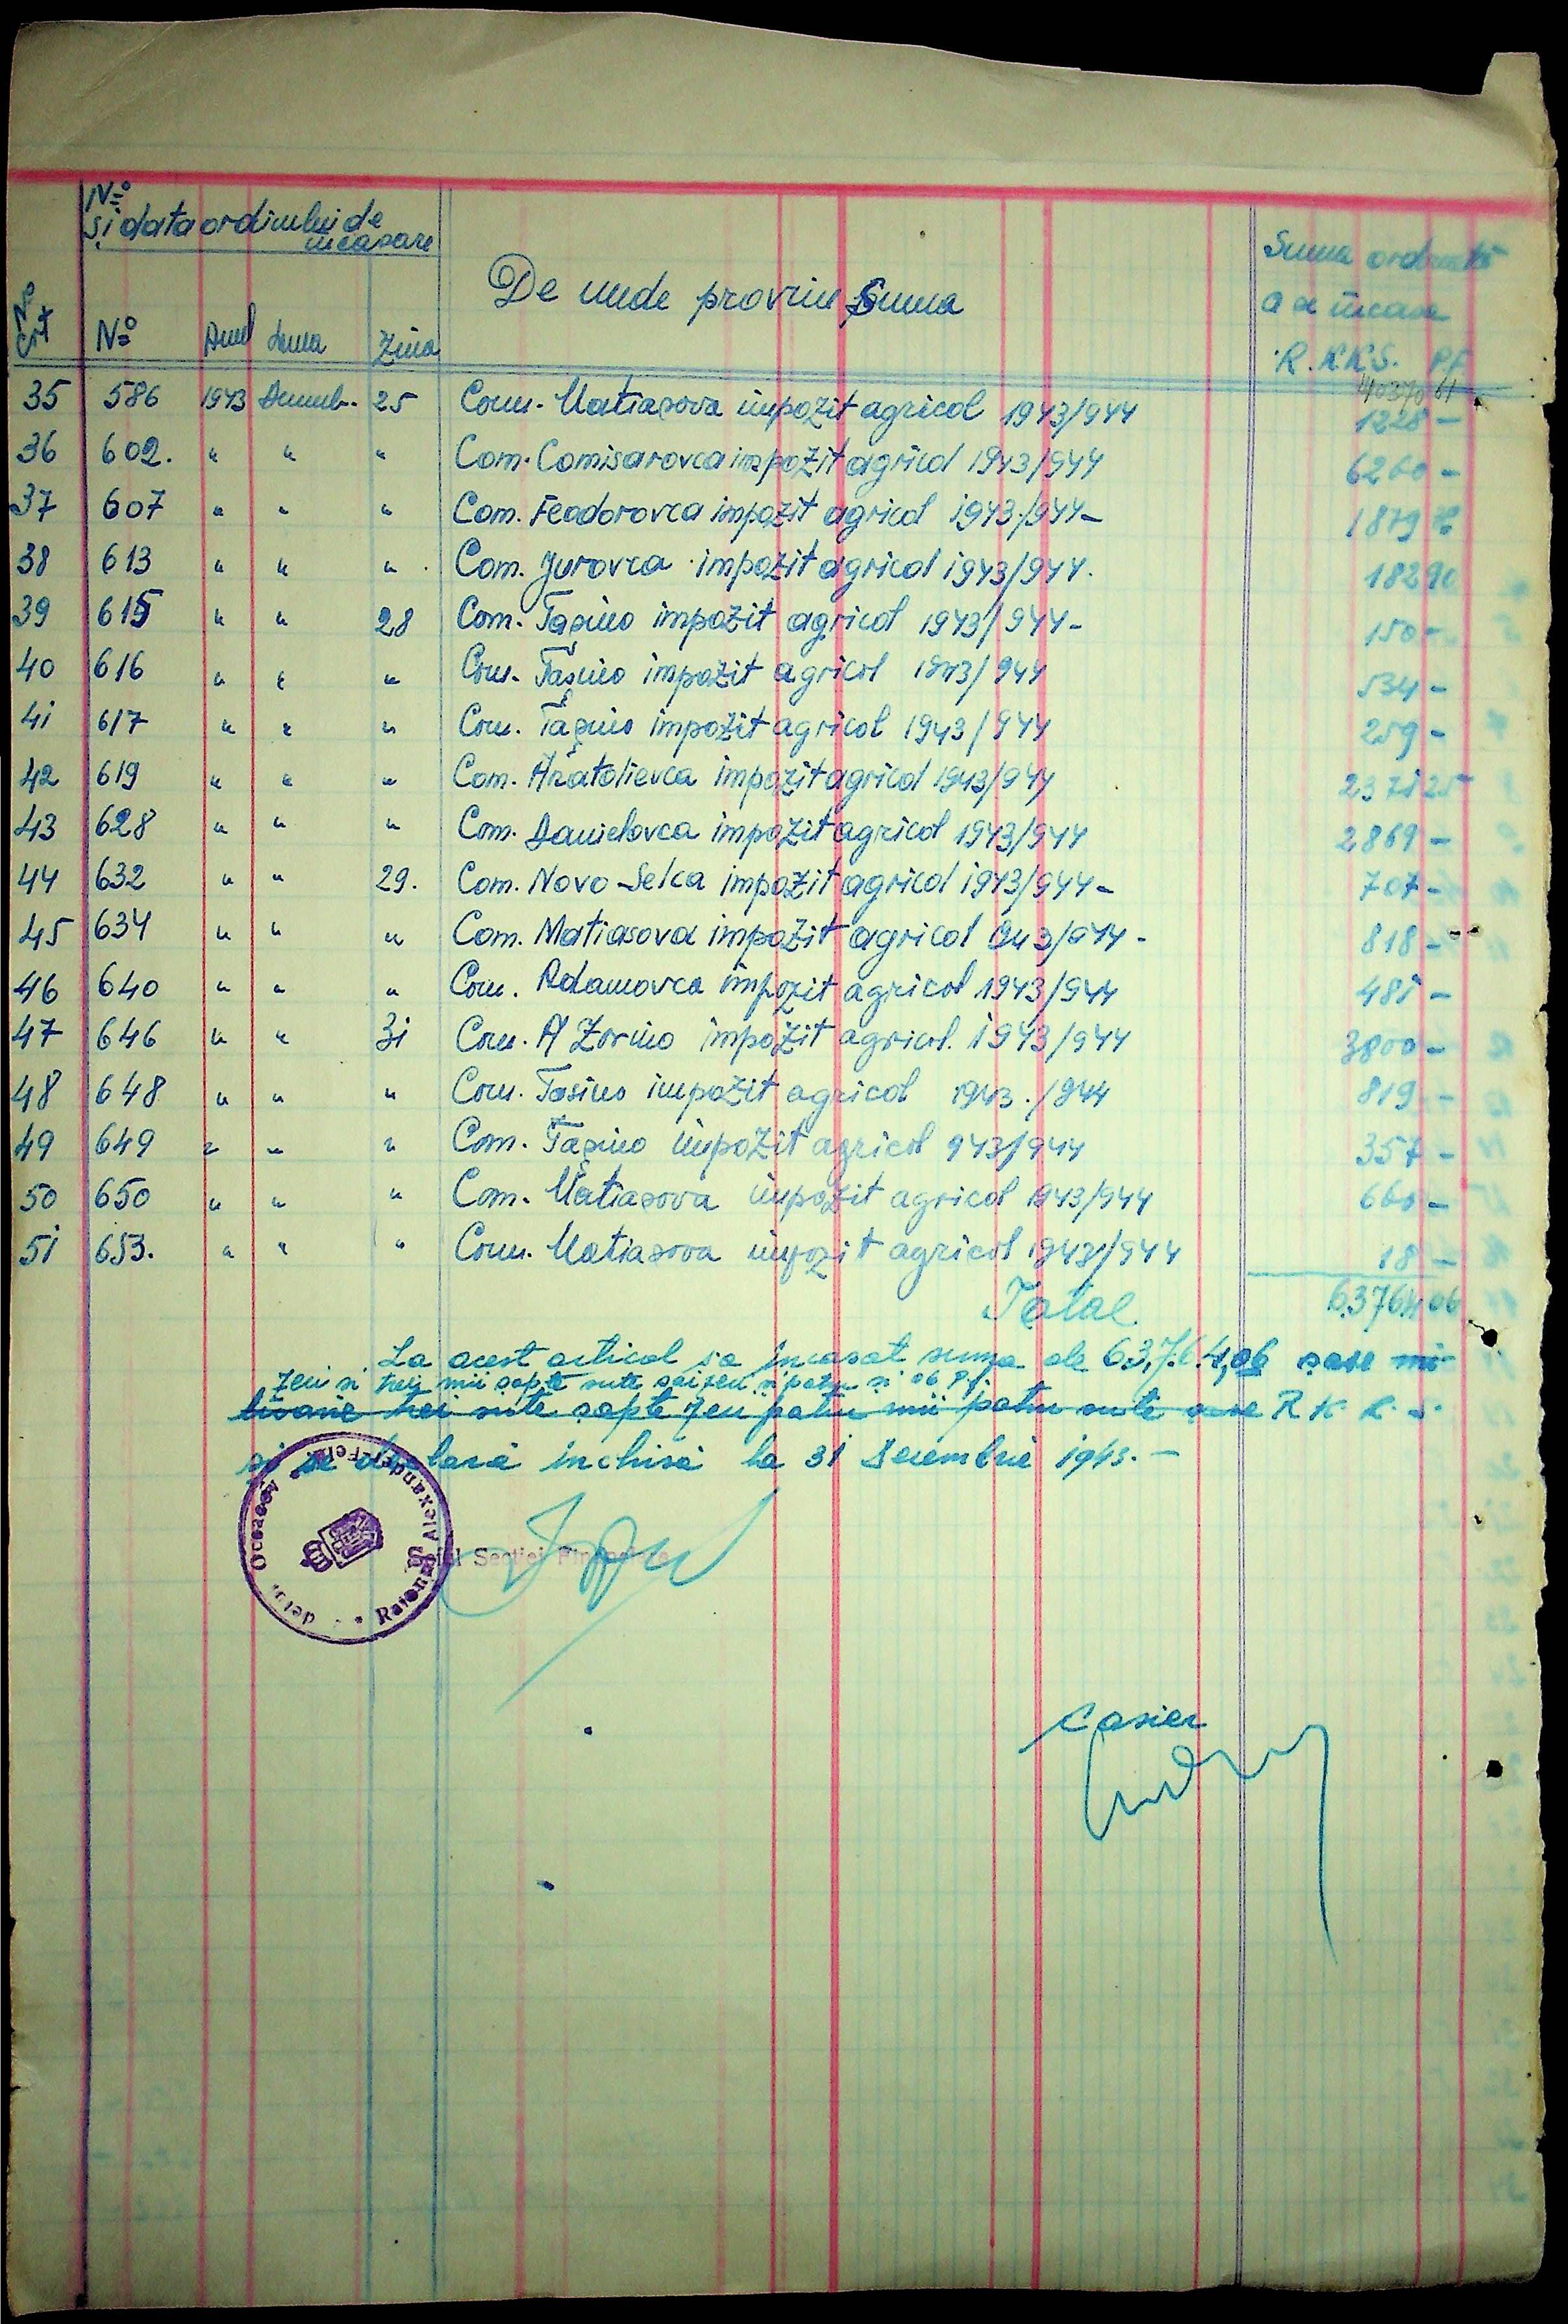 No
și data ordinului de
încasare
No
Crt
No
Anul
Luna
Ziua
De unde provine Suma
Suma ordonată
a a încasa
R.K.K.S. Pf
40370 61
35 586 1943 Decemb. 25 Com. Matiașova impozit agricol 1943/944 1228 -
36 602. " " " Com. Comisarovca impozit agricol 1943/944 6260 -
37 607 " " " Com. Feodorovca impozit agricol 1943/944 - 1879
38 613 " " " Com. Jurovca impozit agricol 1943/944. 182 90
39 615 " " 28 Com. Tașino impozit agricol 1943/944 - 150 -
40 616 " " " Com. Tașino impozit agricol 1943/944 534 -
41 617 " " " Com. Tașino impozit agricol 1943/944 259 -
42 619 " " " Com. Anatolievca impozit agricol 1943/944 2371 25
43 628 " " " Com. Danielovca impozit agricol 1943/944 2869 -
44 632 " " 29. Com. Novo-Selca impozit agricol 1943/944 - 707 -
45 634 " " " Com. Matiasova impozit agricol 943/944 - 818 -
46 640 " " " Com. Adamovca impozit agricol 1943/944 481 -
47 646 " " 31 Com. A Zorino impozit agricol. 1943/944 3800 -
48 648 " " " Com. Tasino impozit agricol 1943./944 819 -
49 649 " " " Com. Tașino impozit agricol 943/944 357 -
50 650 " " " Com. Matiașova impozit agricol 1943/944 660 -
51 653. " " " Com. Matiașova impozit agricol 1943/944 18 -
Total 63764 06
La acest articol s'a încasat suma de 63.764,06 șase mi
zeci si trei mii șapte sute șaizeci și patru si 06 Pf.
lioane trei sute șapte zeci patru mii patru sute șase R K K S.
și se declară închisă la 31 Decembrie 1943. -
Șeful Secției Financiare
Raionul Alexanderfeld
Oceacov
Casier